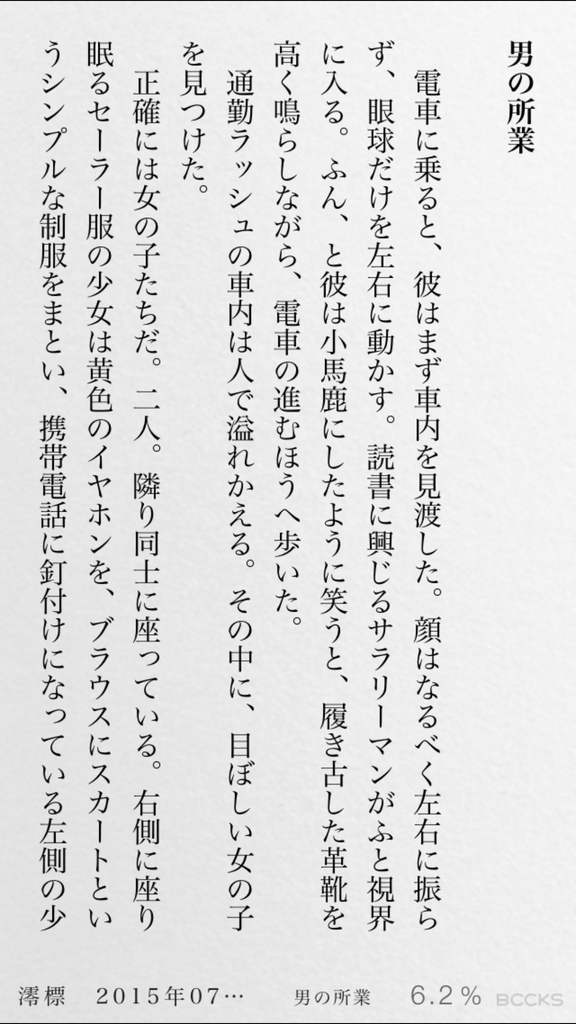 男の所業
　電車に乗ると、彼はまず車内を見渡した。顔はなるべく左右に振ら
ず、眼球だけを左右に動かす。読書に興じるサラリーマンがふと視界
に入る。ふん、と彼は小馬鹿にしたように笑うと、履き古した革靴を
高く鳴らしながら、電車の進むほうへ歩いた。
　通勤ラッシュの車内は人で溢れかえる。その中に、目ぼしい女の子
を見つけた。
　正確には女の子たちだ。二人。隣り同士に座っている。右側に座り
眠るセーラー服の少女は黄色のイヤホンを、ブラウスにスカートとい
うシンプルな制服をまとい、携帯電話に釘付けになっている左側の少
澪標　2015年07…　男の所業　6.2% BCCKS